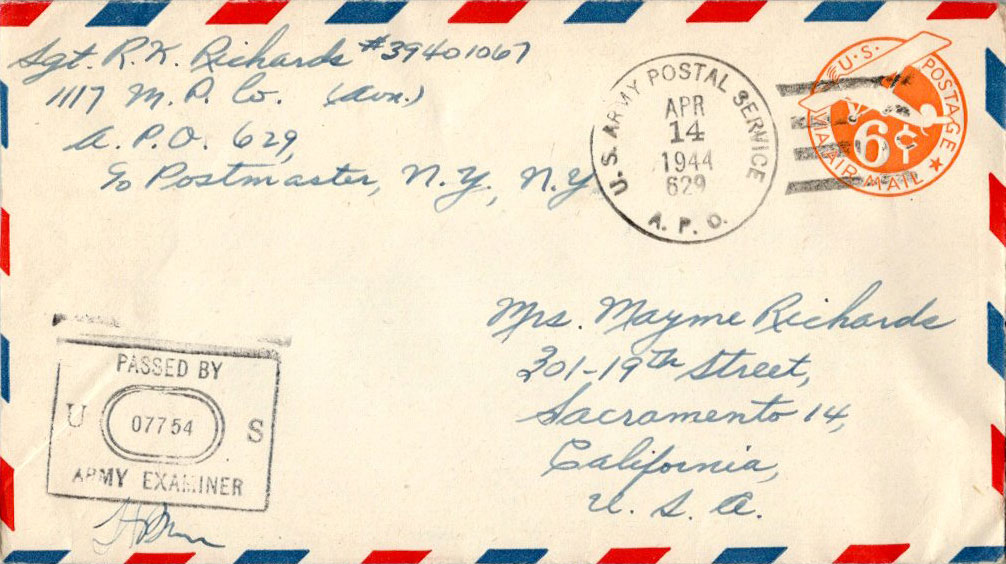 Sgt. R.K. Richards #39401067
1117 M.P. Co. (Avn.)
A.P.O. 629,
c/o Postmaster, N.Y., N.Y.
U.S. ARMY POSTAL SERVICE
APR
14
1944
629
A.P.O.
U.S. POSTAGE
6¢
VIA AIR MAIL
Mrs. Mayme Richards
301-19th Street,
Sacramento 14,
California,
U.S.A.
PASSED BY
U 07754 S
ARMY EXAMINER